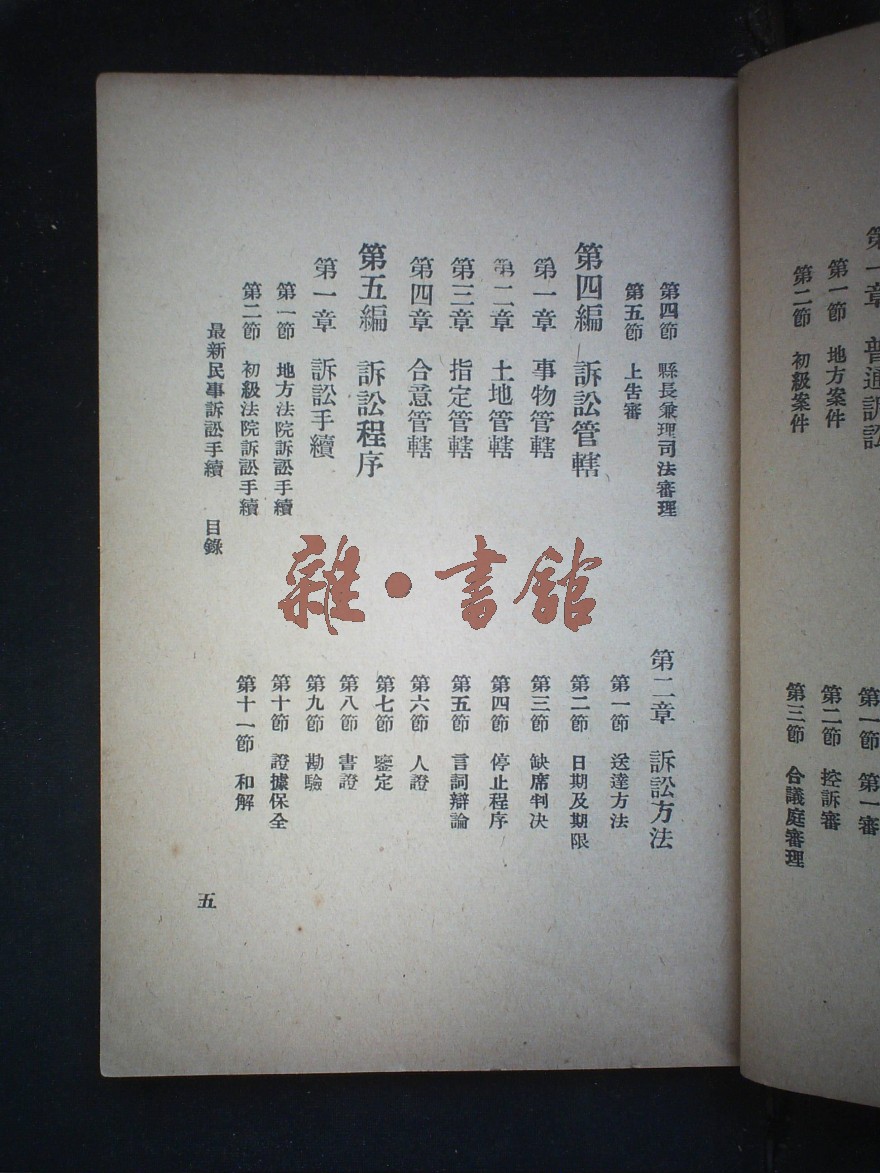 第一章　普通訴訟
第一節　地方案件
第二節　初級案件
第一節　第一審
第二節　控訴審
第三節　合議庭審理
第四節　縣長兼理司法審理
第五節　上告審
第四編　訴訟管轄
第一章　事物管轄
第二章　土地管轄
第三章　指定管轄
第四章　合意管轄
第五編　訴訟程序
第一章　訴訟手續
第一節　地方法院訴訟手續
第二節　初級法院訴訟手續
第二章　訴訟方法
第一節　送達方法
第二節　日期及期限
第三節　缺席判决
第四節　停止程序
第五節　言詞辯論
第六節　人證
第七節　鑒定
第八節　書證
第九節　勘驗
第十節　證據保全
第十一節　和解
最新民事訴訟手續　目錄
五
雜·書館